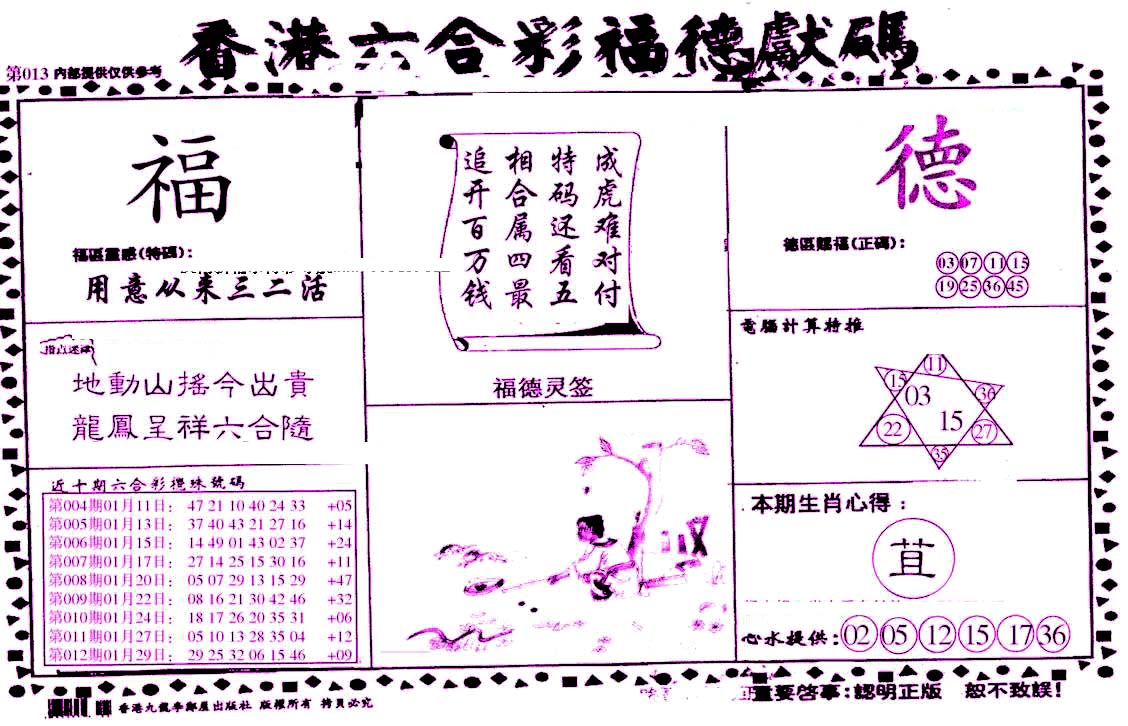 香港六合彩福德獻碼
第013 内部提供仅供参考
福
福區靈感(特碼):
用意从来三二活
指点迷津
地動山搖今出貴
龍鳳呈祥六合隨
近十期六合彩攪珠號碼
第004期01月11日: 47 21 10 40 24 33 +05
第005期01月13日: 37 40 43 21 27 16 +14
第006期01月15日: 14 49 01 43 02 37 +24
第007期01月17日: 27 14 25 15 30 16 +11
第008期01月20日: 05 07 29 13 15 29 +47
第009期01月22日: 08 16 21 30 42 46 +32
第010期01月24日: 18 17 26 20 35 31 +06
第011期01月27日: 05 10 13 28 35 04 +12
第012期01月29日: 29 25 32 06 15 46 +09
成虎难对付
特码还看五
相合属四最
追开百万钱
福德灵签
德
德區賜福(正碼):
03 07 11 15
19 25 36 45
電腦計算特推
11
15 36
03
15
22 27
35
本期生肖心得:
苴
心水提供: 02 05 12 15 17 36
重要啓事:認明正版 恕不致誤!
香港九龍李鄭屋出版社 版權所有 拷貝必究